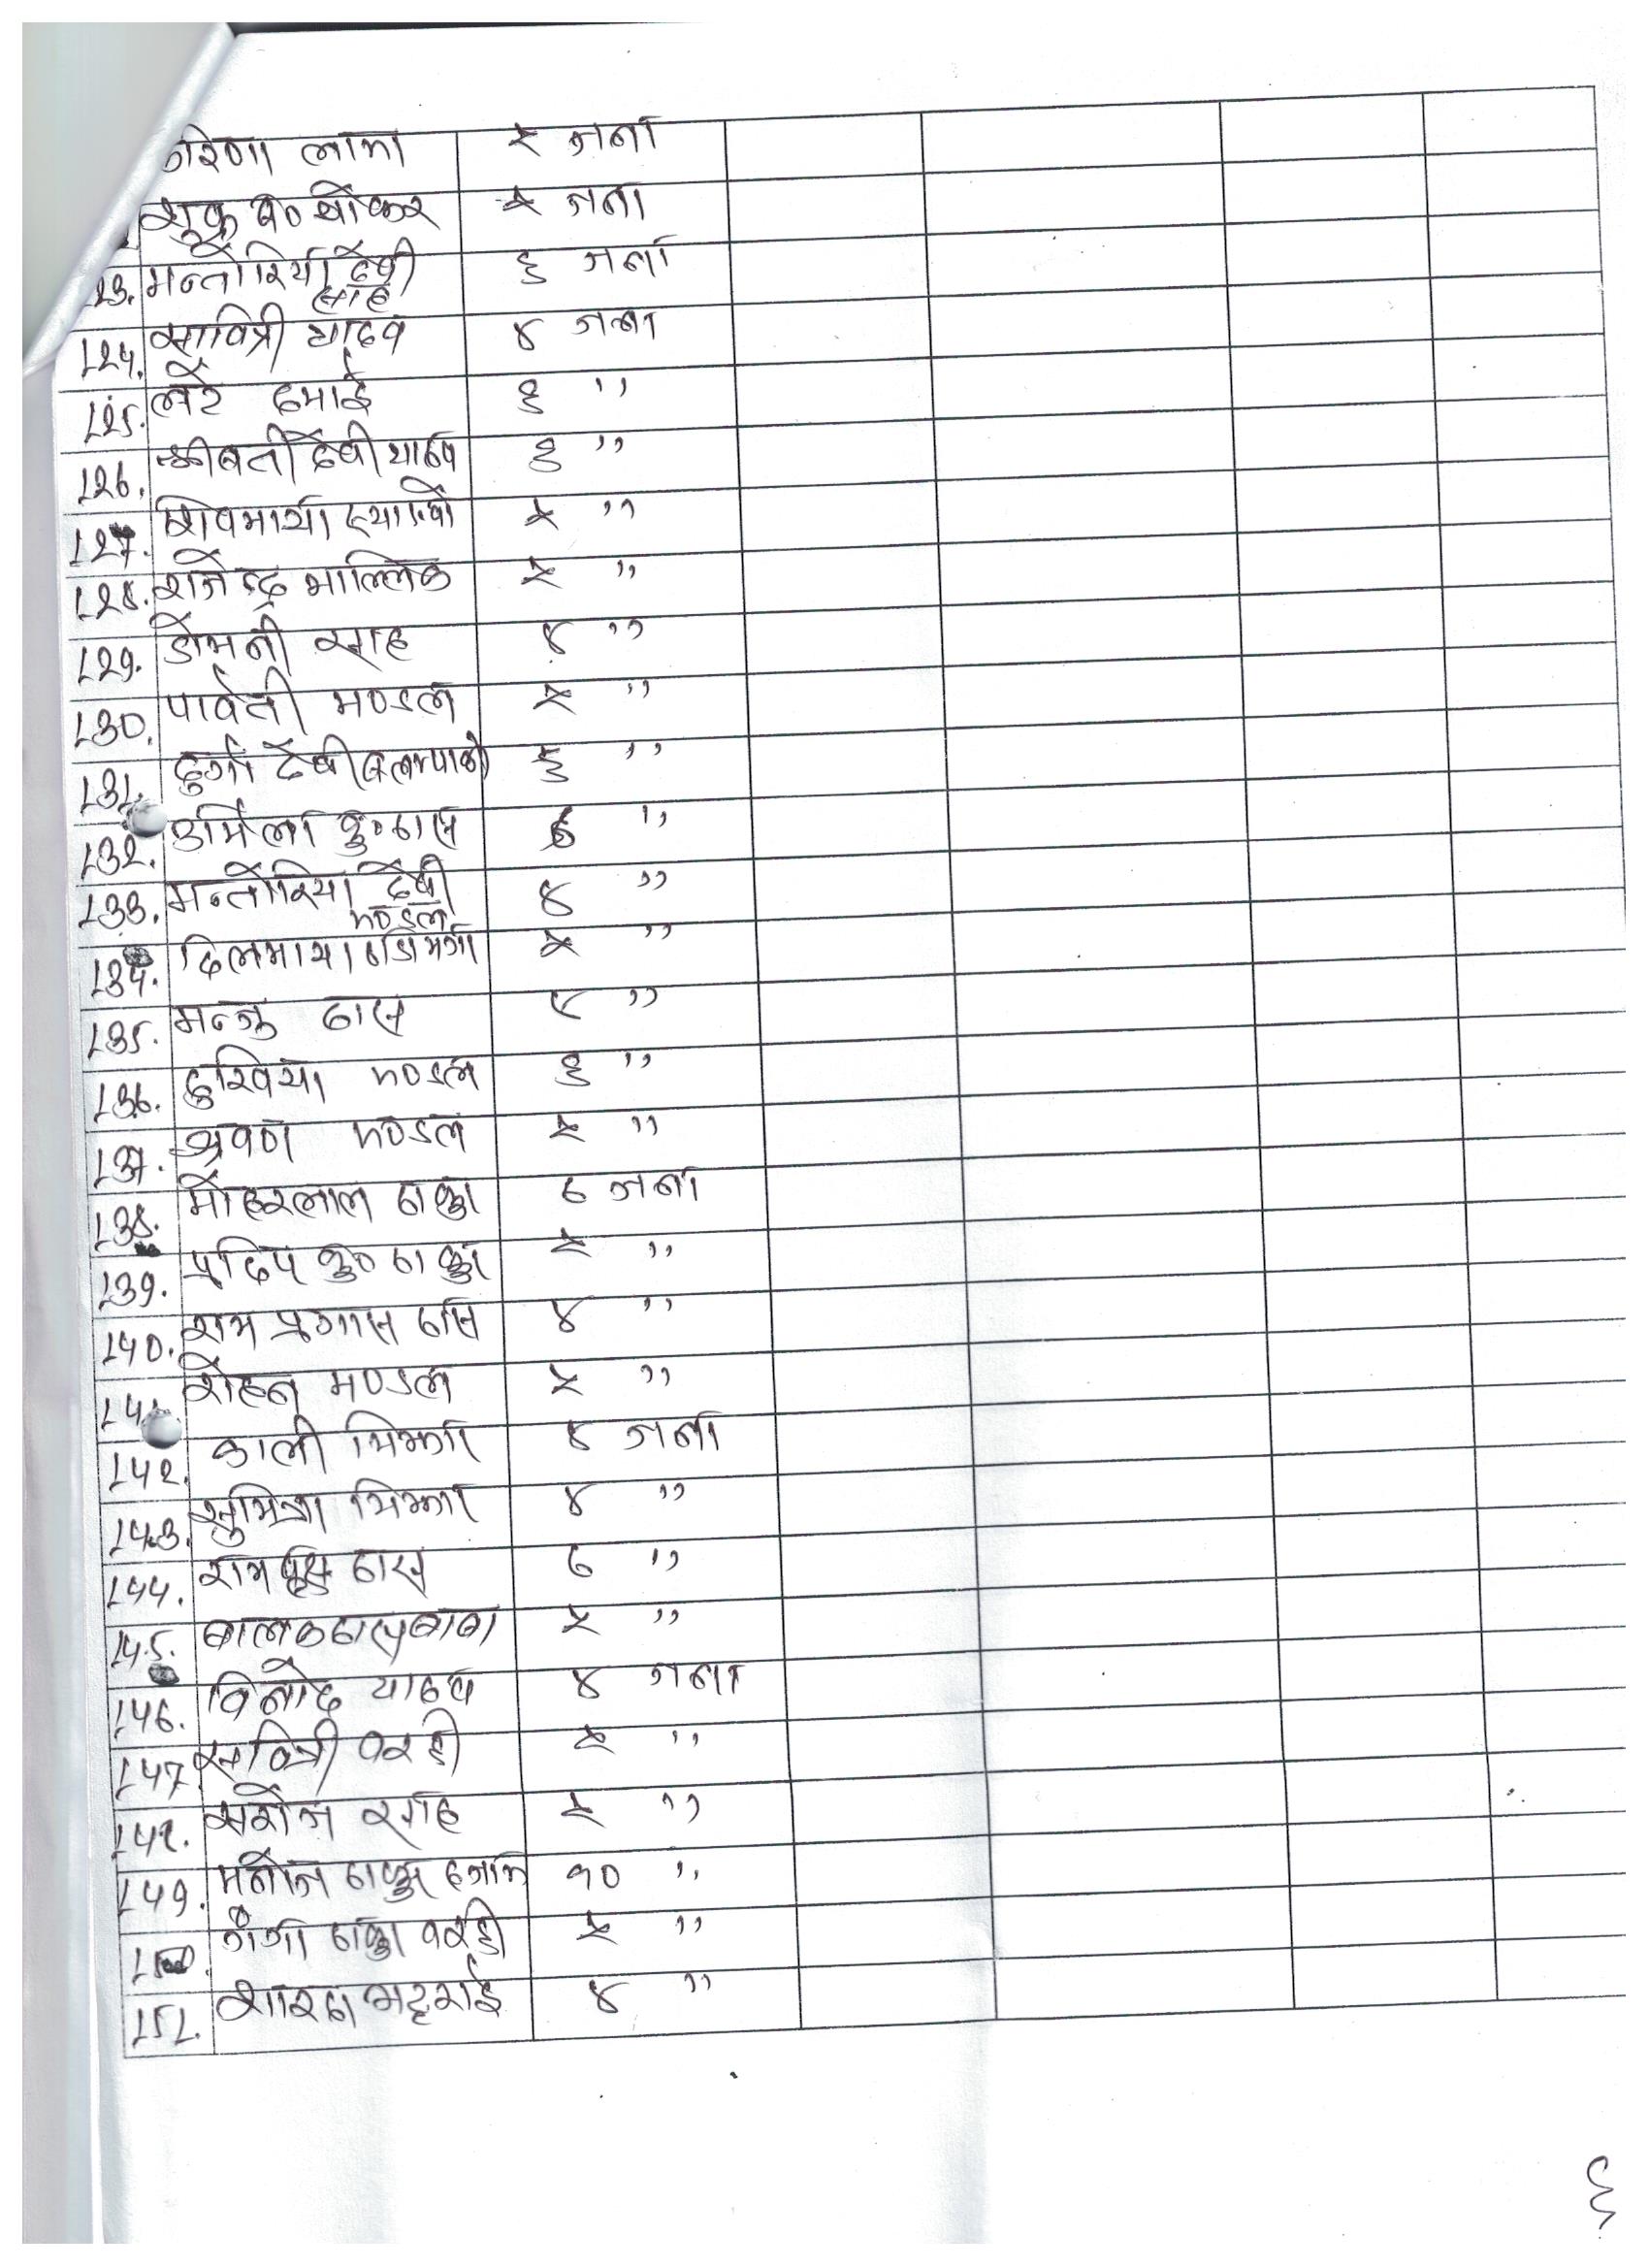 लामा ५ जना
शुक्र ब० थोकर ५ जना
123. मन्तोरिया देवी साह ६ जना
124. सावित्री यादव ४ जना
125. दमाई ६ ,,
126. देवी यादव ६ ,,
127. शिवमाया ५ ,,
128. राजेन्द्र मल्लिक ५ ,,
129. डोमनी साह ४ ,,
130. पार्वती मण्डल ५ ,,
131. दुर्गा देवी ६ ,,
132. उर्मिला कु० दास ६ ,,
133. मन्तोरिया देवी मण्डल ४ ,,
134. दिलमाया ५ ,,
135. मन्जु दास ,,
136. दुखिया मण्डल ६ ,,
137. श्रवण मण्डल ५ ,,
138. मोहरलाल ठाकुर ८ जना
139. प्रदिप कु० ठाकुर ५ ,,
140. राम प्रगास दास ४ ,,
141. रोहन मण्डल ५ ,,
142. काली मिझार ४ जना
143. सुमित्रा मिझार ४ ,,
144. राम दास ,,
145. बालकदास बाबा ५ ,,
146. विनोद यादव ४ जना
147. सावित्री ५ ,,
148. सरोज साह ५ ,,
149. मनोज ठाकुर हजाम १० ,,
150. गंगा ठाकुर ५ ,,
151. शारदा भट्टराई ४ ,,